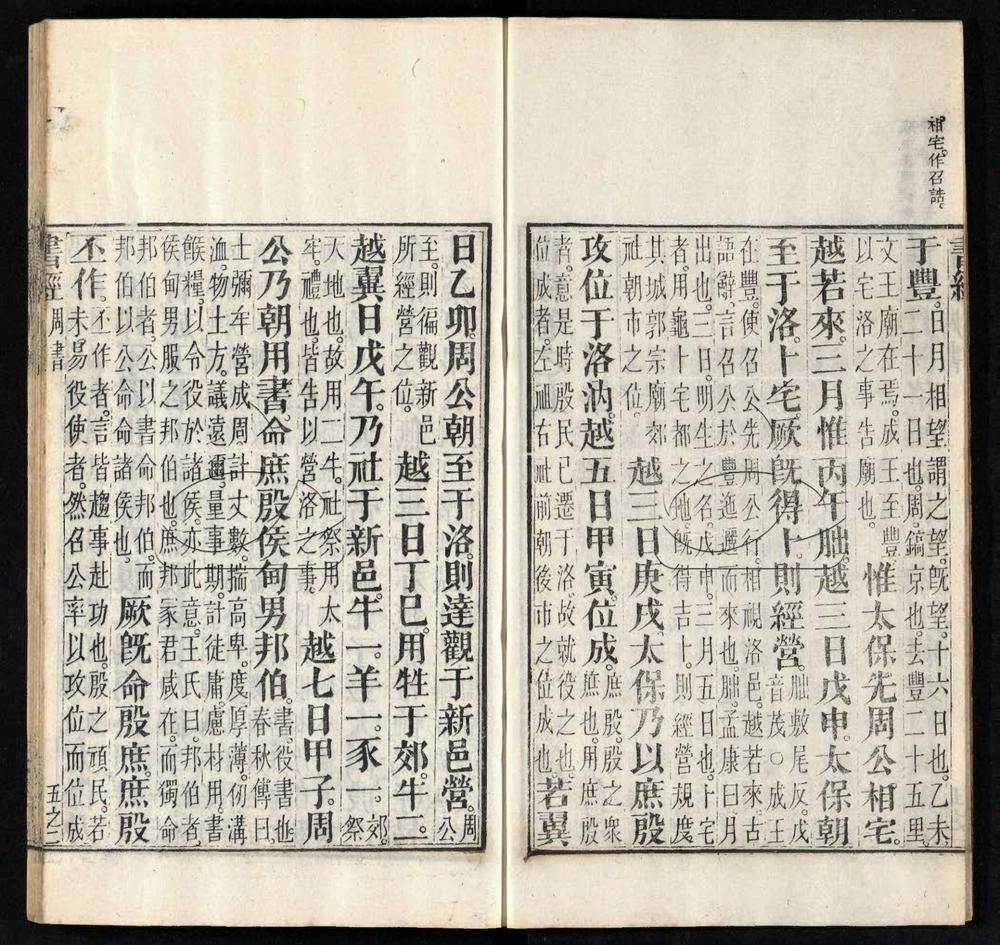 相宅。作召誥。
書經
于豐。
日月相望謂之望。既望。十六日也。乙未。
二十一日也。周。鎬京也。去豐二十五里。
文王廟在焉。成王至豐。
以宅洛之事告廟也。
惟太保先周公相宅。
越若來。三月惟丙午朏。越三日戊申。太保朝
至于洛。卜宅。厥既得卜。則經營。
朏。敷尾反。戊。
音茂。○成王
在豐。使召公先周公行。相視洛邑。越若來。古
語辭。言召公於豐迤邐而來也。朏。孟康曰。月
出也。三日。明生之名。戊申。三月五日也。卜宅
者。用龜卜宅都之地。既得吉卜。則經營規度
其城郭宗廟郊
社朝市之位。
越三日庚戌。太保乃以庶殷
攻位于洛汭。越五日甲寅。位成。
庶殷。殷之衆
庶也。用庶殷
者。意是時殷民已遷于洛。故就役之也。
位成者。左祖右社前朝後市之位成也。
若翼
日乙卯。周公朝至于洛。則達觀于新邑營。
周
公
至。則徧觀新邑
所經營之位。
越三日丁巳。用牲于郊。牛二。
越翼日戊午。乃社于新邑。牛一。羊一。豕一。
郊。
祭
天地也。故用二牛。社祭用太
牢。禮也。皆告以營洛之事。
越七日甲子。周
公乃朝用書。命庶殷侯甸男邦伯。
書。役書也。
春秋傳曰。
士彌牟營成周。計丈數。揣高卑。度厚薄。仞溝
洫。物土方。議遠邇。量事期。計徒庸。慮材用。書
餱糧。以令役於諸侯。亦此意。王氏曰。邦伯者。
侯甸男服之邦伯也。庶邦冢君咸在。而獨命
邦伯者。公以書命邦伯。而
邦伯以公命命諸侯也。
厥既命殷庶。庶殷
丕作。
丕作者。言皆趨事赴功也。殷之頑民。若
未易役使者。然召公率以攻位而位成
書經
周書
五之二